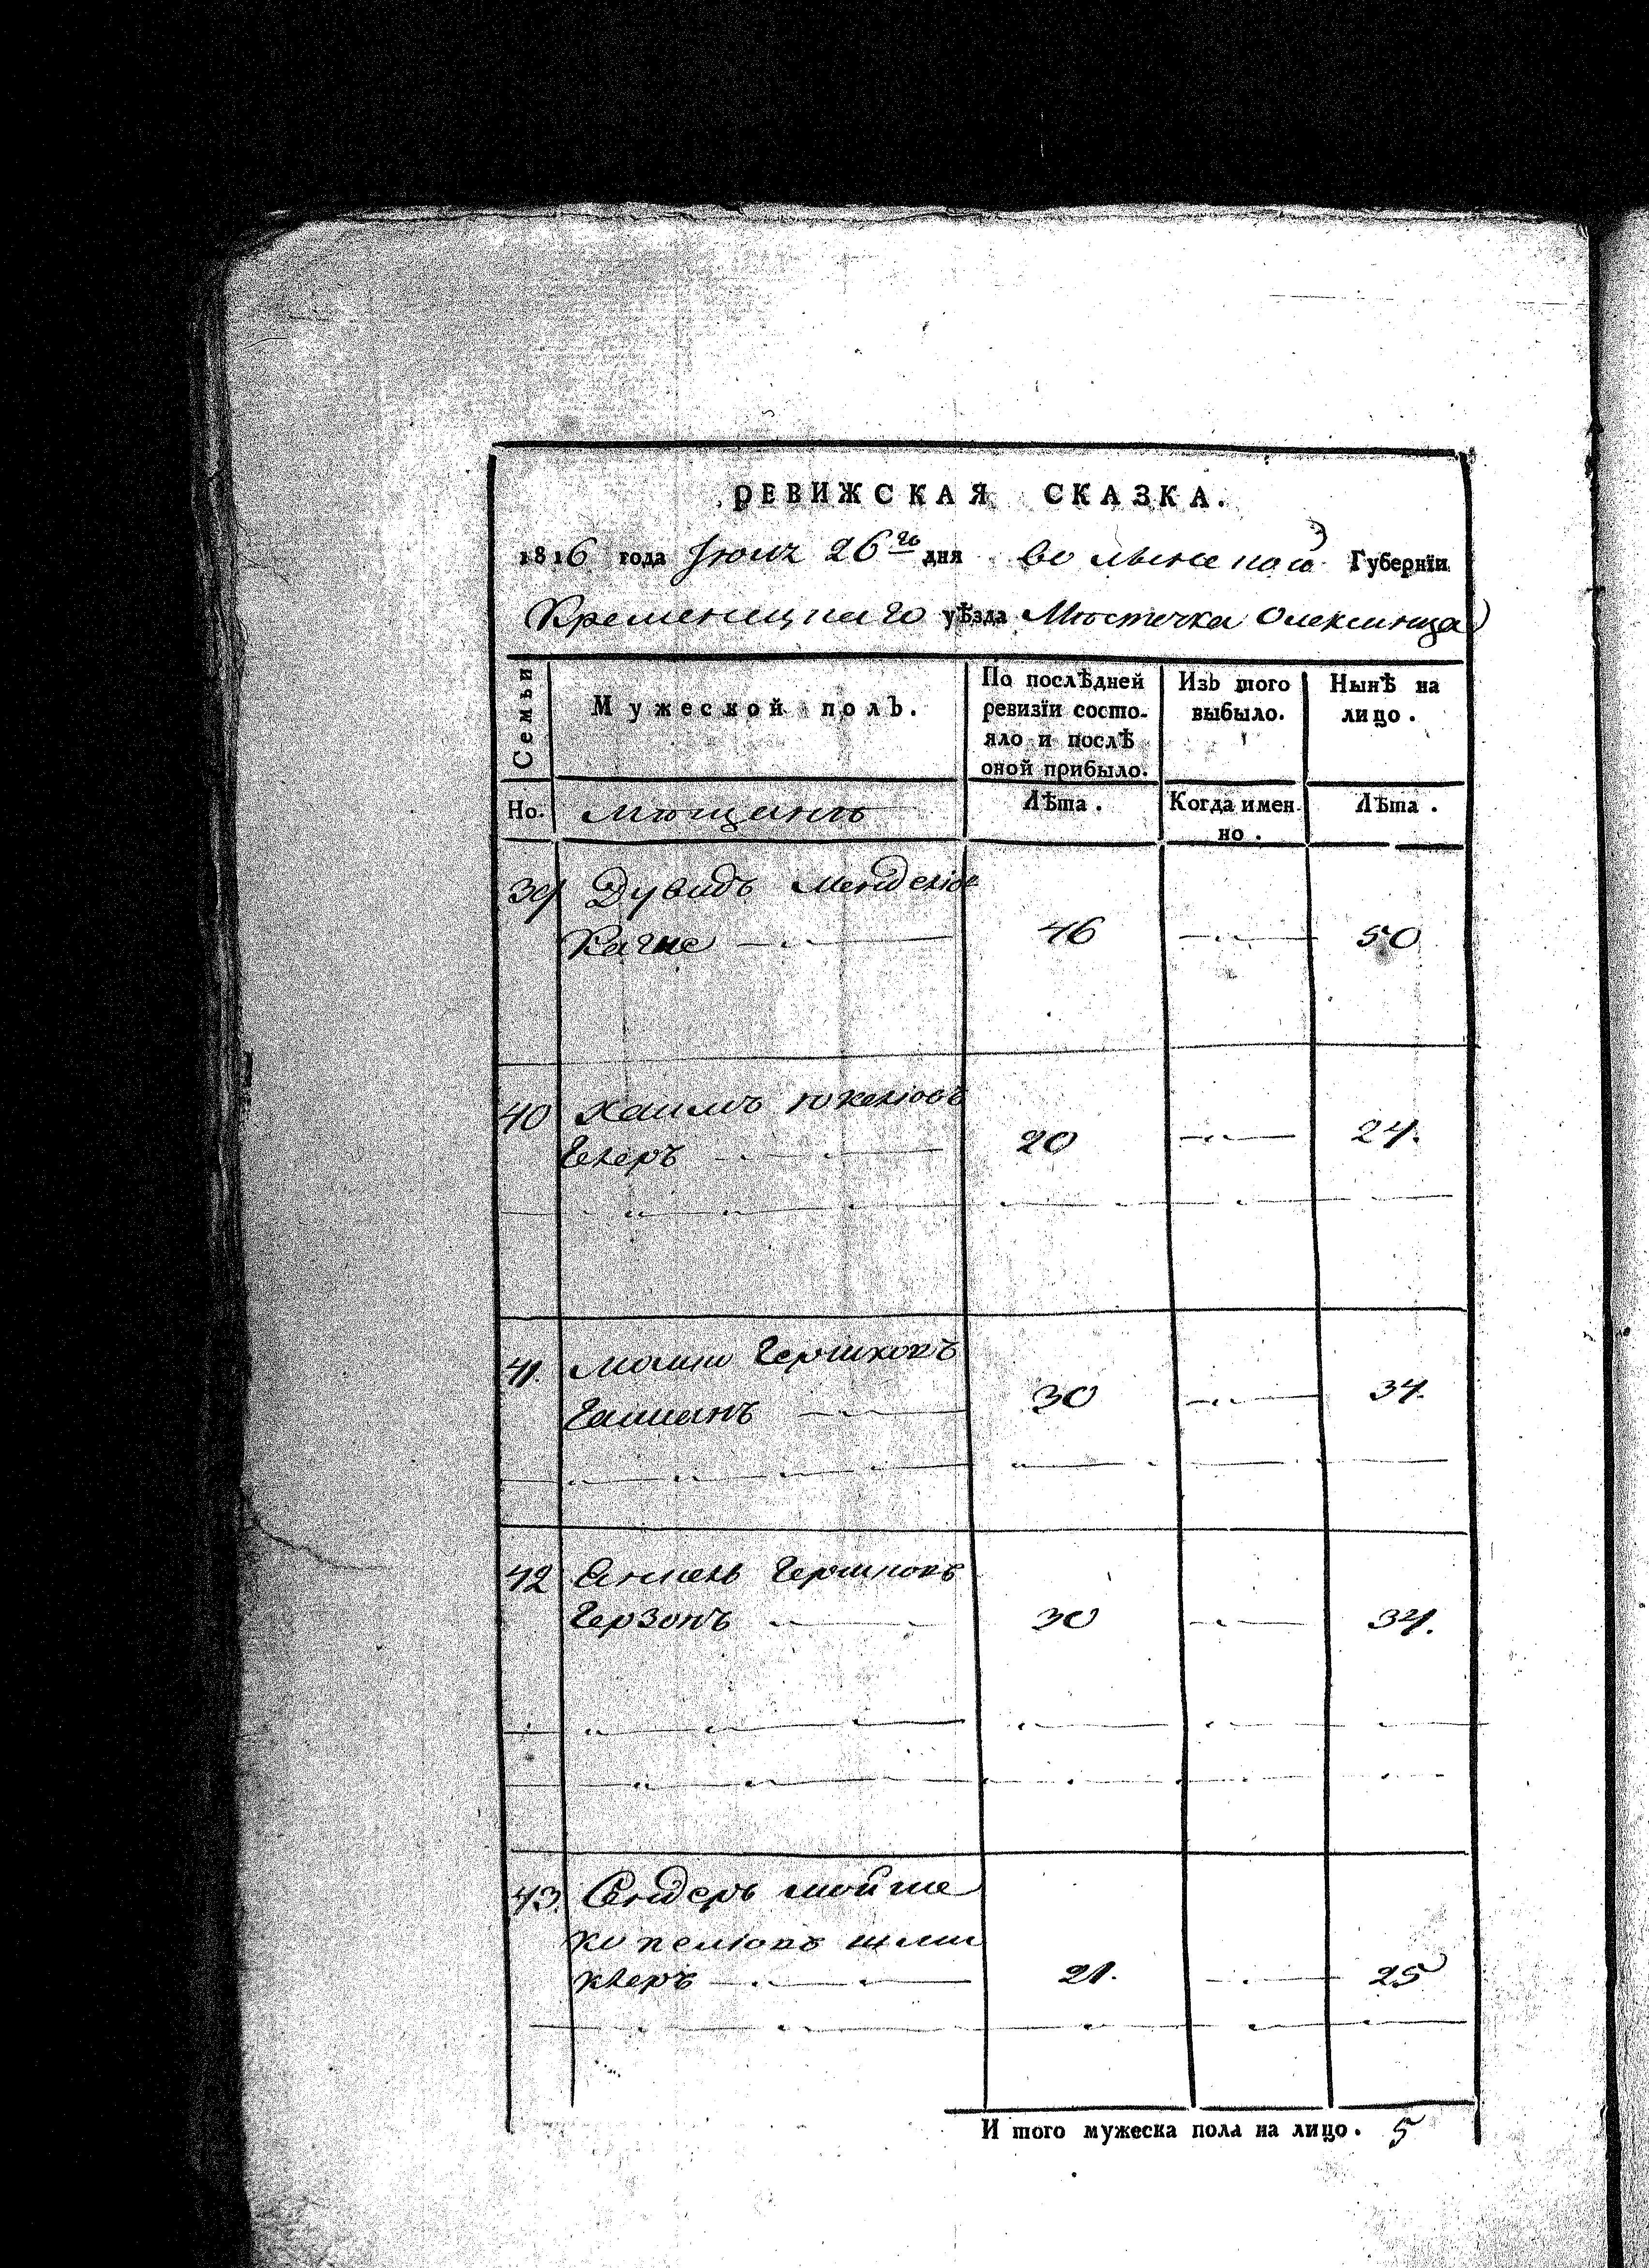 РЕВИЖСКАЯ СКАЗКА.
1816 года Июля 26го дня Волынской Губернїи
Кременецкаго уѣзда Мѣстечка Олексинца
Семьи
Мужеской полъ.
По послѣдней ревизїи состо-
яло и послѣ
оной прибыло.
Изъ того
выбыло.
Нынѣ на
лицо.
Но.
Мѣщанъ
Лѣта.
Когда имен-
но.
Лѣта.
39 Дувидъ Менделіов
46 50
40 Хаимъ
20 24.
41. Мошко Гершковъ
30 34.
42 Гершковъ
Герзонъ 30 34.
43. Сендеръ Мойше
21. 25
И того мужеска пола на лицо. 5